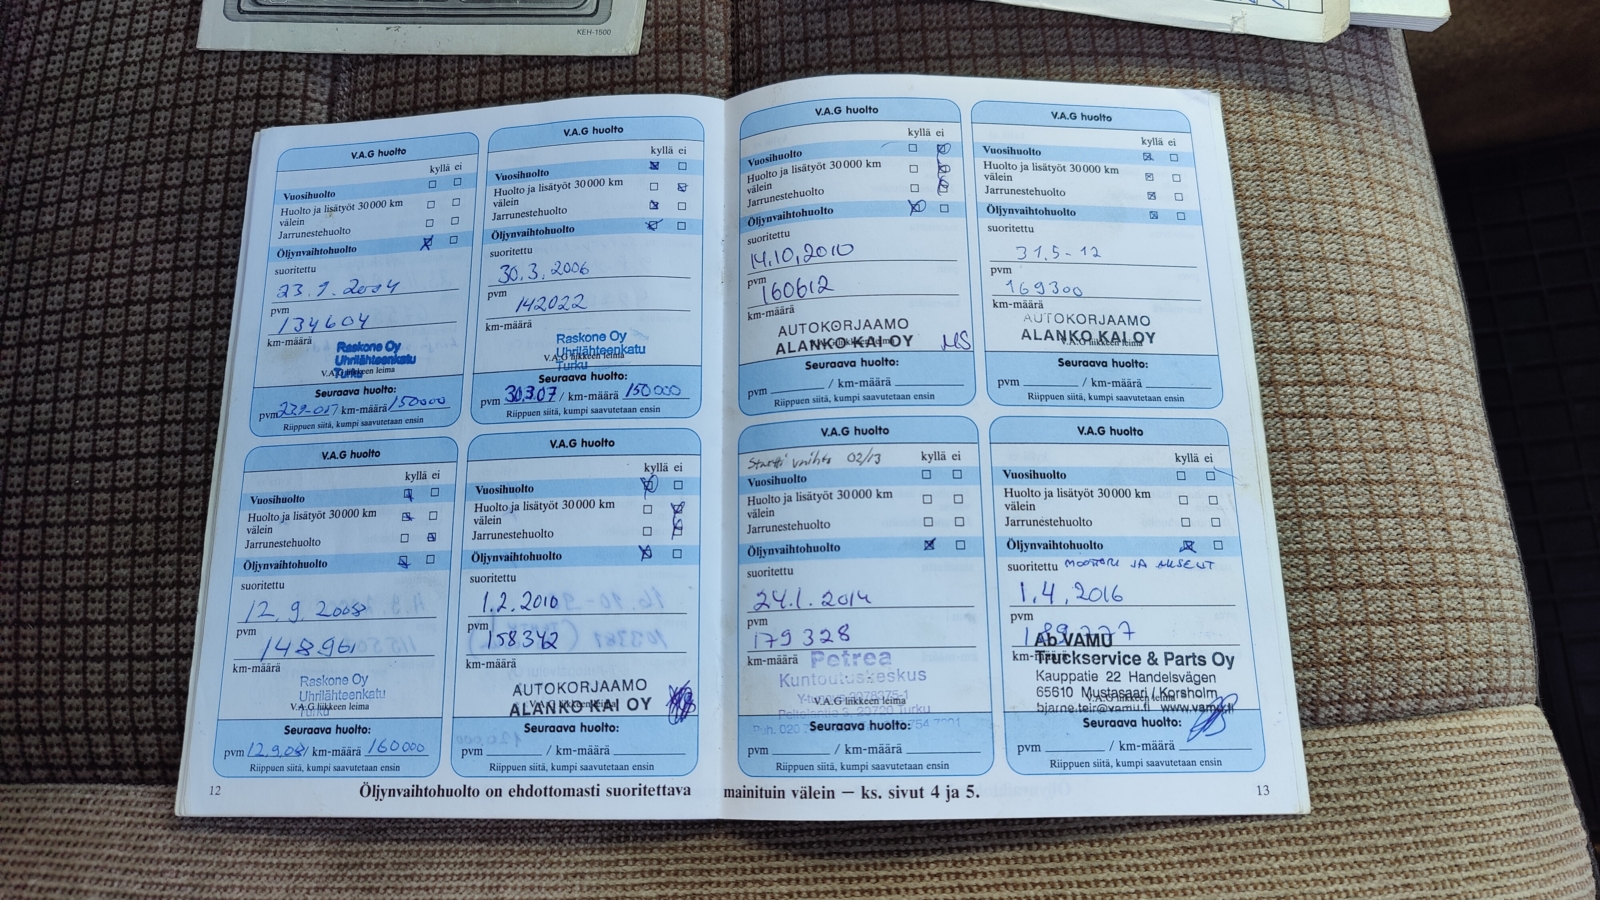 KEH-1500
V.A.G huolto
kyllä ei
Vuosihuolto
Huolto ja lisätyöt 30 000 km
välein
Jarrunestehuolto
Öljynvaihtohuolto
suoritettu
pvm
134604
km-määrä
Raskone Oy
Uhrilähteenkatu
Turku
V.A.G liikkeen leima
Seuraava huolto:
pvm / km-määrä 150000
Riippuen siitä, kumpi saavutetaan ensin
V.A.G huolto
kyllä ei
Vuosihuolto
Huolto ja lisätyöt 30 000 km
välein
Jarrunestehuolto
Öljynvaihtohuolto
suoritettu
30.3.2006
pvm
142022
km-määrä
Raskone Oy
Uhrilähteenkatu
Turku
V.A.G liikkeen leima
Seuraava huolto:
pvm 30.3.07 / km-määrä 150000
Riippuen siitä, kumpi saavutetaan ensin
V.A.G huolto
kyllä ei
Vuosihuolto
Huolto ja lisätyöt 30 000 km
välein
Jarrunestehuolto
Öljynvaihtohuolto
suoritettu
12.9.2008
pvm
148961
km-määrä
Raskone Oy
Uhrilähteenkatu
Turku
V.A.G liikkeen leima
Seuraava huolto:
pvm 12.9.09 / km-määrä 160000
Riippuen siitä, kumpi saavutetaan ensin
V.A.G huolto
kyllä ei
Vuosihuolto
Huolto ja lisätyöt 30 000 km
välein
Jarrunestehuolto
Öljynvaihtohuolto
suoritettu
1.2.2010
pvm
158342
km-määrä
AUTOKORJAAMO
ALANKO KAI OY
V.A.G liikkeen leima
Seuraava huolto:
pvm / km-määrä
Riippuen siitä, kumpi saavutetaan ensin
12
Öljynvaihtohuolto on ehdottomasti suoritettava
V.A.G huolto
kyllä ei
Vuosihuolto
Huolto ja lisätyöt 30 000 km
välein
Jarrunestehuolto
Öljynvaihtohuolto
suoritettu
14.10.2010
pvm
160612
km-määrä
AUTOKORJAAMO
ALANKO KAI OY
V.A.G liikkeen leima
MS
Seuraava huolto:
pvm / km-määrä
Riippuen siitä, kumpi saavutetaan ensin
V.A.G huolto
kyllä ei
Vuosihuolto
Huolto ja lisätyöt 30 000 km
välein
Jarrunestehuolto
Öljynvaihtohuolto
suoritettu
31.5-12
pvm
169300
km-määrä
AUTOKORJAAMO
ALANKO KAI OY
V.A.G liikkeen leima
Seuraava huolto:
pvm / km-määrä
Riippuen siitä, kumpi saavutetaan ensin
V.A.G huolto
Startti vaihto 02/13
kyllä ei
Vuosihuolto
Huolto ja lisätyöt 30 000 km
välein
Jarrunestehuolto
Öljynvaihtohuolto
suoritettu
24.1.2014
pvm
179328
km-määrä
Petrea
Kuntoutuskeskus
20720 Turku
V.A.G liikkeen leima
Seuraava huolto:
pvm / km-määrä
Riippuen siitä, kumpi saavutetaan ensin
V.A.G huolto
kyllä ei
Vuosihuolto
Huolto ja lisätyöt 30 000 km
välein
Jarrunestehuolto
Öljynvaihtohuolto
suoritettu MOOTTORI JA AKSELIT
1.4.2016
pvm
km-määrä
Ab VAMU
Truckservice & Parts Oy
Kauppatie 22 Handelsvägen
65610 Mustasaari / Korsholm
bjarne.teir@vamu.fi www.vamu.fi
V.A.G liikkeen leima
Seuraava huolto:
pvm / km-määrä
Riippuen siitä, kumpi saavutetaan ensin
mainituin välein — ks. sivut 4 ja 5.
13